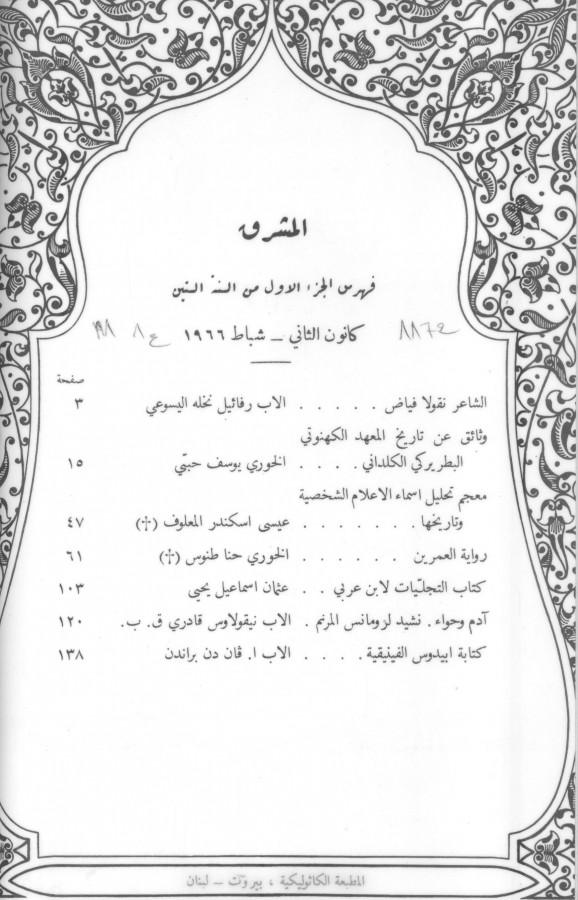 المشرق
فهرس الجزء الاول من السنة الستين
كانون الثاني – شباط ١٩٦٦
صفحة
الشاعر نقولا فياض . . . . . الاب رفائيل نخله اليسوعي ٣
وثائق عن تاريخ المعهد الكهنوتي
البطريركي الكلداني . . . . الخوري يوسف حبّي ١٥
معجم تحليل اسماء الاعلام الشخصية
وتاريخها . . . . . . . عيسى اسكندر المعلوف (†) ٤٧
رواية العمرين . . . . . . الخوري حنا طنوس (†) ٦١
كتاب التجلّيات لابن عربي . . عثمان اسماعيل يحيى ١٠٣
آدم وحواء . نشيد لرومانس المرنم . الاب نيقولاوس قادري ق. ب. ١٢٠
كتابة ابيدوس الفينيقية . . . . الاب ا. ڤان دن براندن ١٣٨
المطبعة الكاثوليكية ، بيروت – لبنان